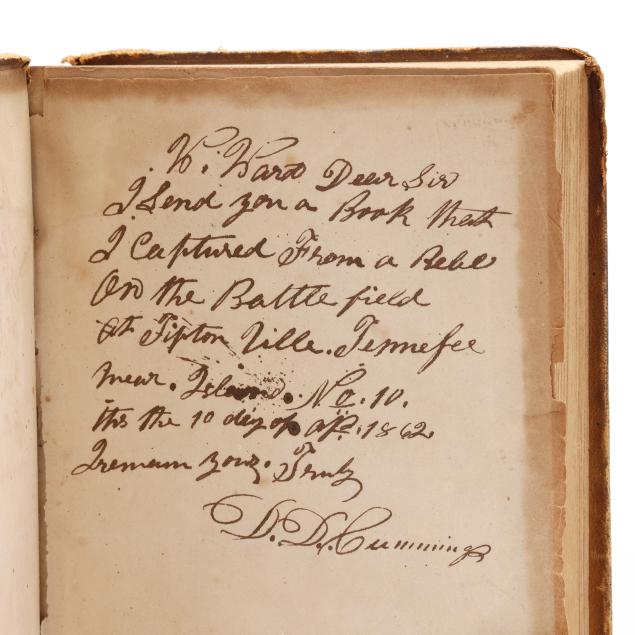 W. Ward Dear Sir
I Send you a Book that
I Captured From a Rebel
On the Battle field
at Tipton Ville. Tennessee
near. Island. No. 10.
this the 10 day of AP. 1862
I remain yours. Truly
D. D. Cummings